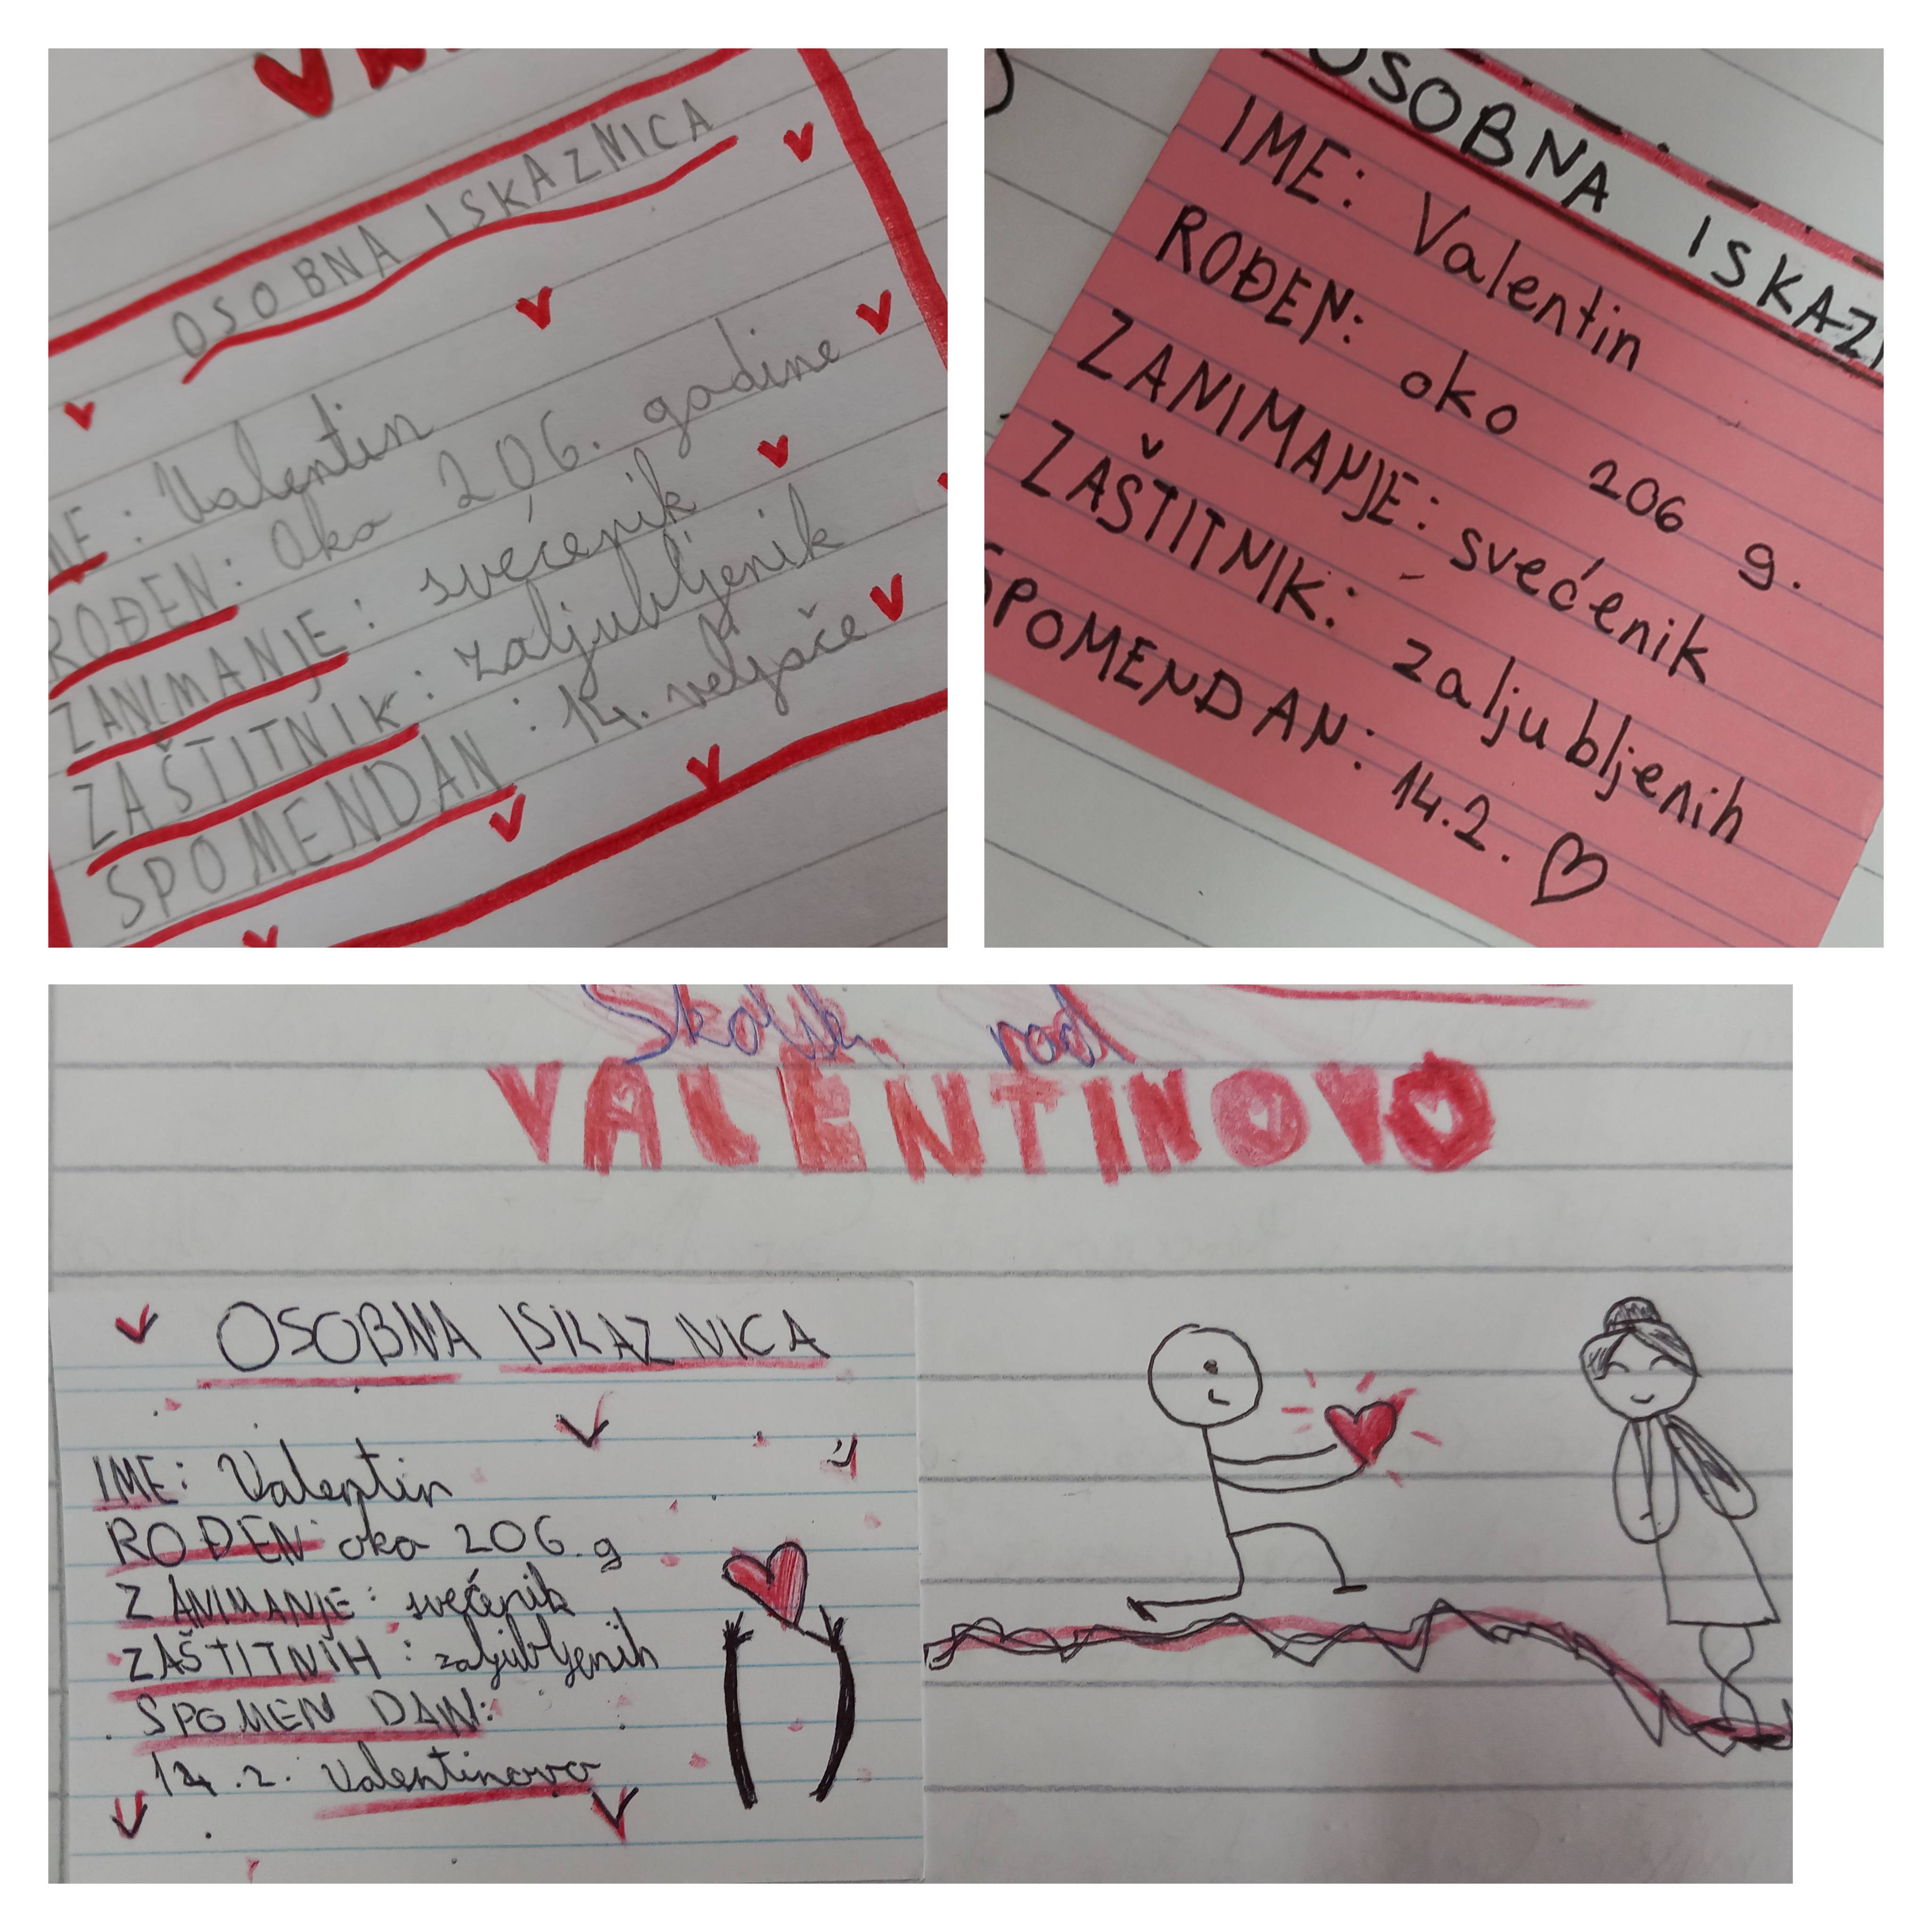 OSOBNA ISKAZNICA
ME: Valentin
ROĐEN: Oko 206. godine
ZANIMANJE: svećenik
ZAŠTITNIK: zaljubljenik
SPOMENDAN: 14. veljače
OSOBNA ISKAZN
IME: Valentin
ROĐEN: oko 206 g.
ZANIMANJE: svećenik
ZAŠTITNIK: zaljubljenih
SPOMENDAN: 14.2.
Školski rad
VALENTINOVO
OSOBNA ISKAZNICA
IME: Valentin
ROĐEN: oko 206. g
ZANIMANJE: svećenik
ZAŠTITNIH: zaljubljenih
SPOMEN DAN:
14.2. Valentinovo